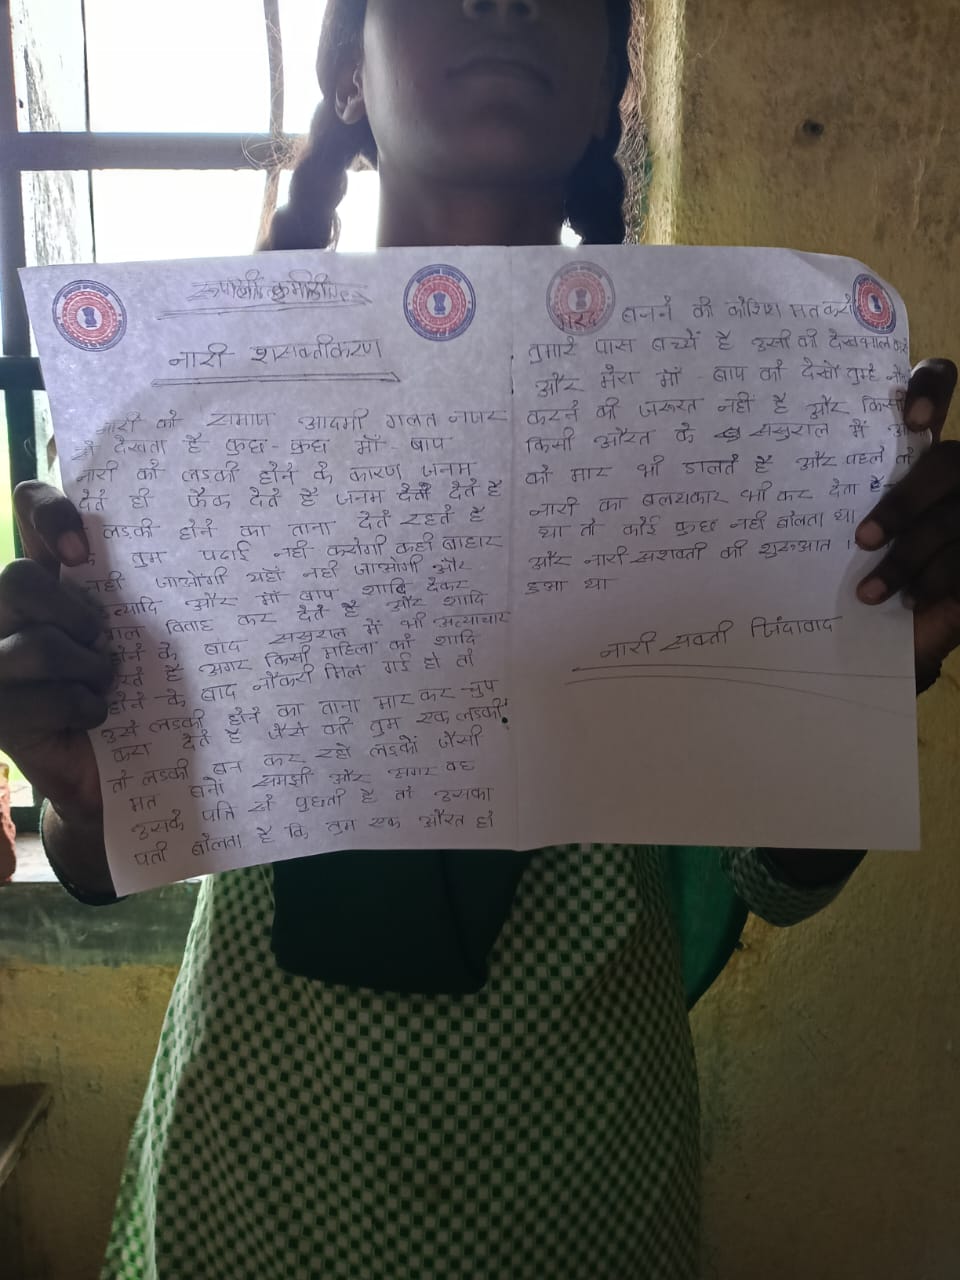 नारी शसक्तीकरण
नारी को समाप आदमी गलत नजर
से देखता है कुछ-कुछ माँ-बाप
नारी को लडकी होने के कारण जनम
देते ही फेक देते है जनम देतो देते है
लडकी होने का ताना देते रहते है
के तुम पढाई नही करोगी कही बाहार
नही जाओगी यहाँ नही जाओगी और
त्यादि और माँ बाप शादि देकर
विवाह कर देते है और शादि
होने के बाद ससुराल में भी अत्याचार
करते है अगर किसी महिला को शादि
होने के बाद नौकरी मिल गई हो तो
उसे लडकी होने का ताना मार कर चुप
करा देते है जैसे की तुम एक लडकी
तो लडकी बन कर रहो लडकों जैसी
मत बनों समझी और अगर वह
उसके पति से पुछती है तो उसका
पती बोलता है कि तुम एक औरत हो
मरद बनने की कोशिश मत करो
तुमारे पास बच्चें है उसी की देखभाल करो
और मेरा माँ-बाप को देखो तुम्हे
करने की जरूरत नही है और किसी
किसी औरत के ससुराल में
को मार भी डालते है और पहले तो
नारी का बलत्यकार भी कर देता है
था तो कोई कुछ नही बोलता था
और नारी सशक्ती की शुरुआत ।
हुआ था
नारी सक्ती जिंदावाद